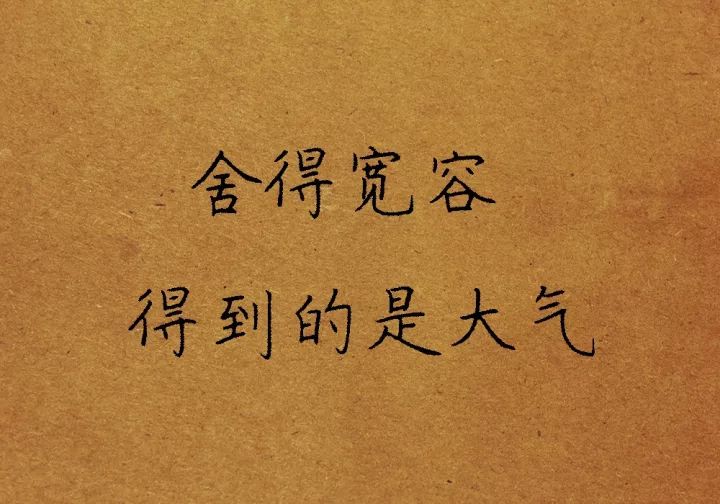 舍得宽容
得到的是大气